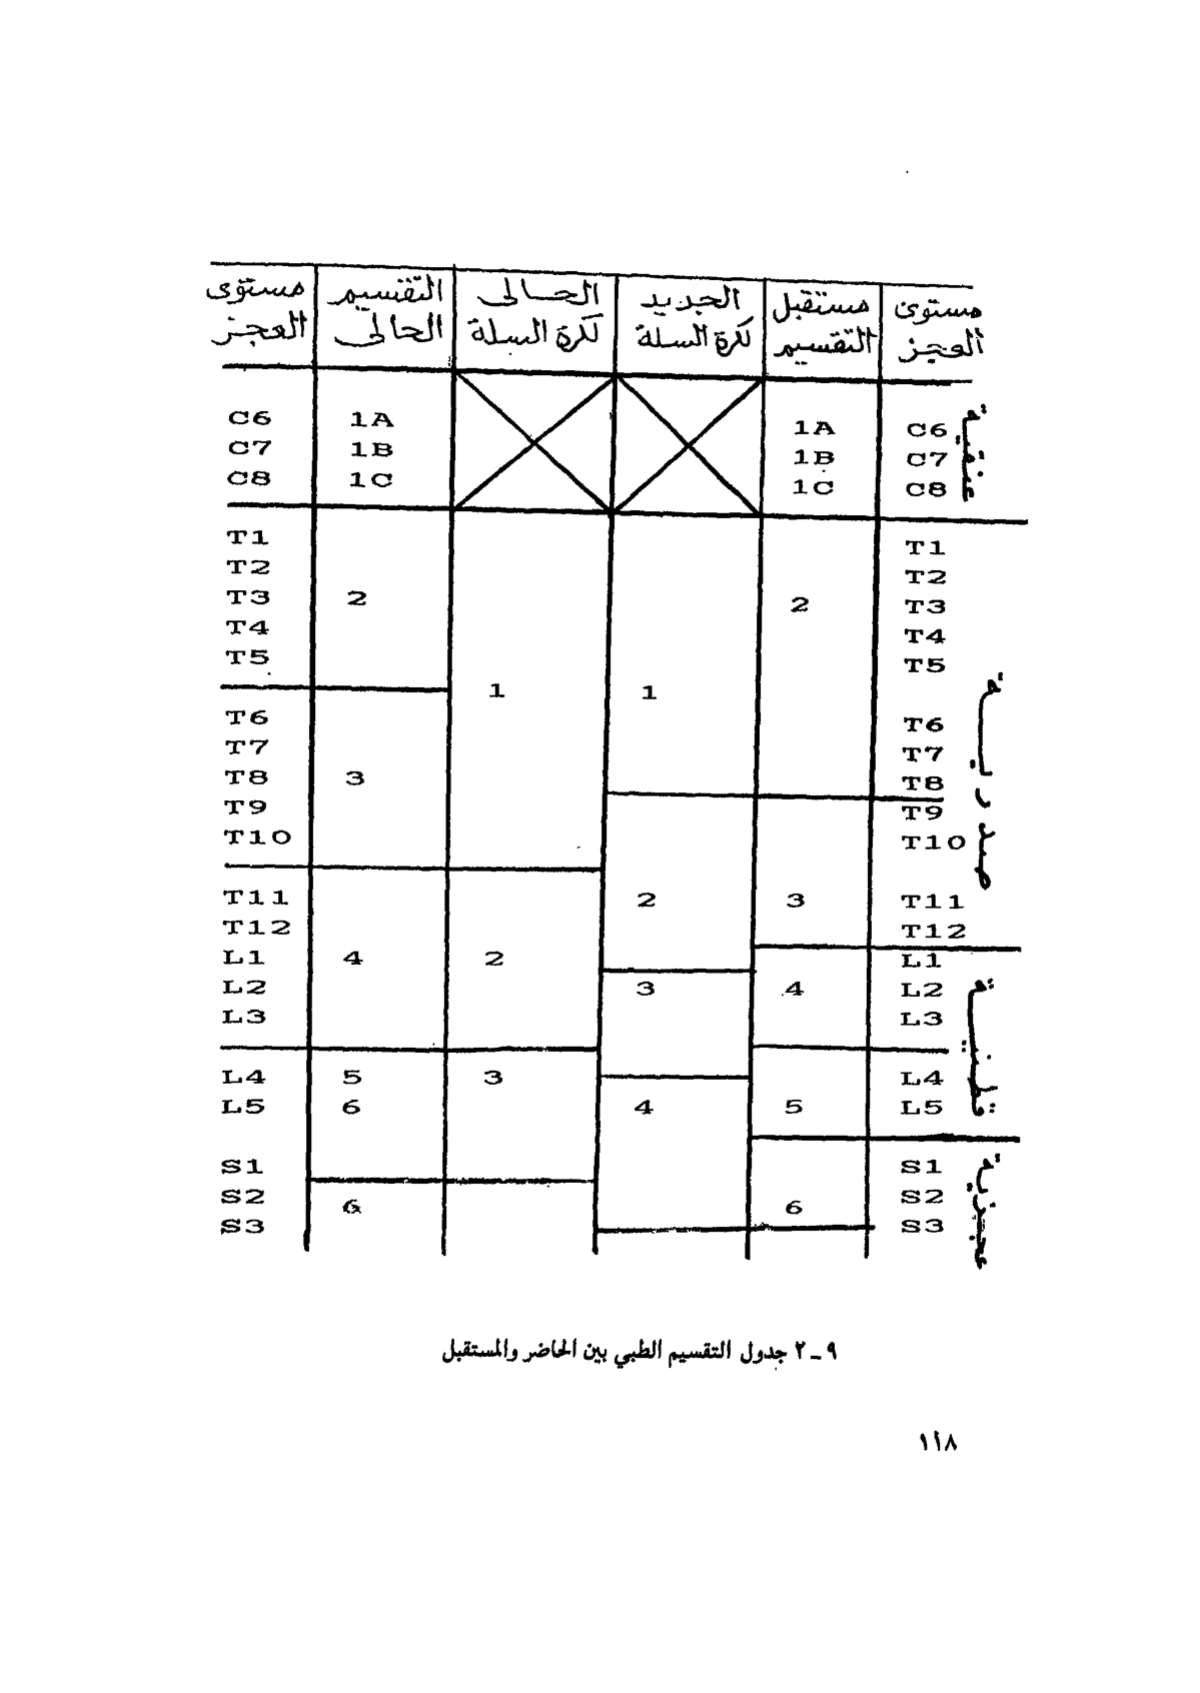 مستوى العجز | مستقبل التقسيم | الجديد لكرة السلة | الحالى لكرة السلة | التقسيم الحالى | مستوى العجز
عنقية
C6 1A 1A C6
C7 1B 1B C7
C8 1C 1C C8
صدرية
T1 T1
T2 T2
T3 2 2 T3
T4 T4
T5 T5
1 1
T6 T6
T7 T7
T8 3 T8
T9 T9
T10 T10
T11 2 3 T11
T12 T12
قطنية
L1 4 2 L1
L2 3 4 L2
L3 L3
L4 5 3 L4
L5 6 4 5 L5
عجزية
S1 S1
S2 6 6 S2
S3 S3
٩ ـ ٢ جدول التقسيم الطبي بين الحاضر والمستقبل
١١٨